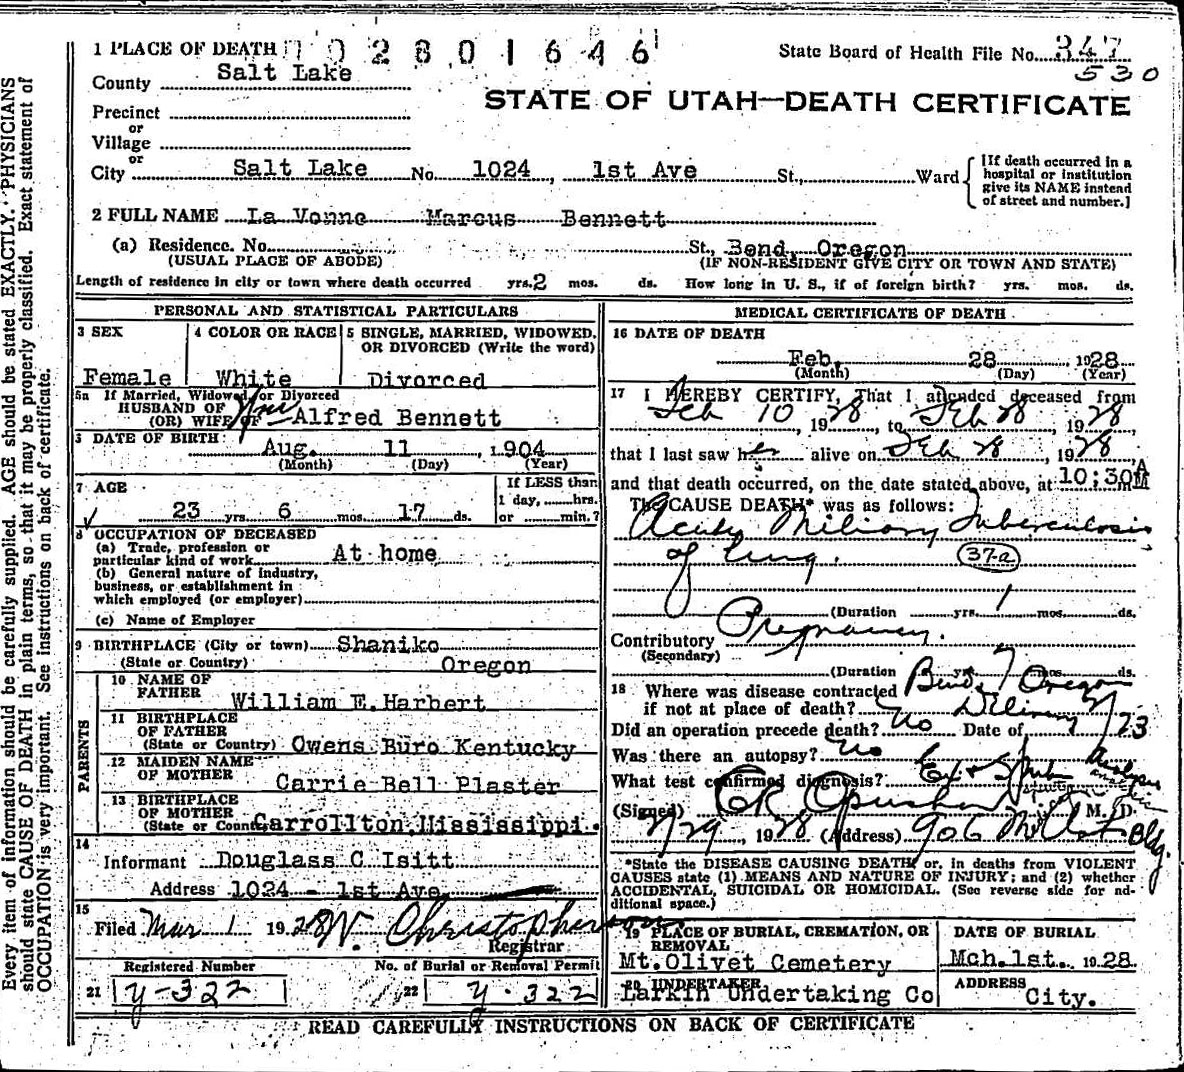 1 PLACE OF DEATH 02801646
State Board of Health File No. 347
530
County Salt Lake
STATE OF UTAH—DEATH CERTIFICATE
Precinct
or
Village
or
City Salt Lake No. 1024, 1st Ave St., Ward
[If death occurred in a
hospital or institution
give its NAME instead
of street and number.]
2 FULL NAME La Vonne Marcus Bennett
(a) Residence. No. St., Bend, Oregon
(USUAL PLACE OF ABODE) (IF NON-RESIDENT GIVE CITY OR TOWN AND STATE)
Length of residence in city or town where death occurred yrs. 2 mos. ds. How long in U. S., if of foreign birth? yrs. mos. ds.
PERSONAL AND STATISTICAL PARTICULARS
3 SEX
Female
4 COLOR OR RACE
White
5 SINGLE, MARRIED, WIDOWED,
OR DIVORCED (Write the word)
Divorced
5a If Married, Widowed or Divorced
HUSBAND OF
(OR) WIFE OF Alfred Bennett
DATE OF BIRTH:
Aug. 11, 1904
(Month) (Day) (Year)
7 AGE
23 yrs. 6 mos. 17 ds.
If LESS than
1 day, hrs.
or min.?
8 OCCUPATION OF DECEASED
(a) Trade, profession or
particular kind of work At home
(b) General nature of industry,
business, or establishment in
which employed (or employer)
(c) Name of Employer
9 BIRTHPLACE (City or town) Shaniko
(State or Country) Oregon
PARENTS
10 NAME OF
FATHER William E. Harbert
11 BIRTHPLACE
OF FATHER
(State or Country) Owens Buro Kentucky
12 MAIDEN NAME
OF MOTHER Carrie Bell Plaster
13 BIRTHPLACE
OF MOTHER
(State or Country) Carrollton, Mississippi.
14
Informant Douglass C Isitt
Address 1024 - 1st Ave
15
Filed Mar 1 1928 W. Christopherson
Registrar
Registered Number
21 y-322
No. of Burial or Removal Permit
22 y-322
MEDICAL CERTIFICATE OF DEATH
16 DATE OF DEATH
Feb. 28 1928
(Month) (Day) (Year)
17 I HEREBY CERTIFY, That I attended deceased from
Feb 10, 1928, to Feb 28, 1928,
that I last saw her alive on Feb 28, 1928
and that death occurred, on the date stated above, at 10:30 AM
The CAUSE DEATH* was as follows:
Acute Miliary Tuberculosis
of lung. 37-a
(Duration yrs. 1 mos. ds.
Contributory Pregnancy.
(Secondary)
(Duration yrs. 7 mos. ds.
18 Where was disease contracted
if not at place of death? Bend, Oregon
Did an operation precede death? No Delivery Date of 2/23
Was there an autopsy? No
What test confirmed diagnosis? Ex + Sputum
(Signed) M. D.
2/29, 1928 (Address) 906 Bldg.
*State the DISEASE CAUSING DEATH, or, in deaths from VIOLENT
CAUSES state (1) MEANS AND NATURE OF INJURY; and (2) whether
ACCIDENTAL, SUICIDAL OR HOMICIDAL. (See reverse side for ad-
ditional space.)
19 PLACE OF BURIAL, CREMATION, OR
REMOVAL
Mt. Olivet Cemetery
DATE OF BURIAL
Mch. 1st. 1928.
20 UNDERTAKER
Larkin Undertaking Co
ADDRESS
City.
READ CAREFULLY INSTRUCTIONS ON BACK OF CERTIFICATE
Every item of information should be carefully supplied. AGE should be stated EXACTLY. PHYSICIANS
should state CAUSE OF DEATH in plain terms, so that it may be properly classified. Exact statement of
OCCUPATION is very important. See instructions on back of certificate.